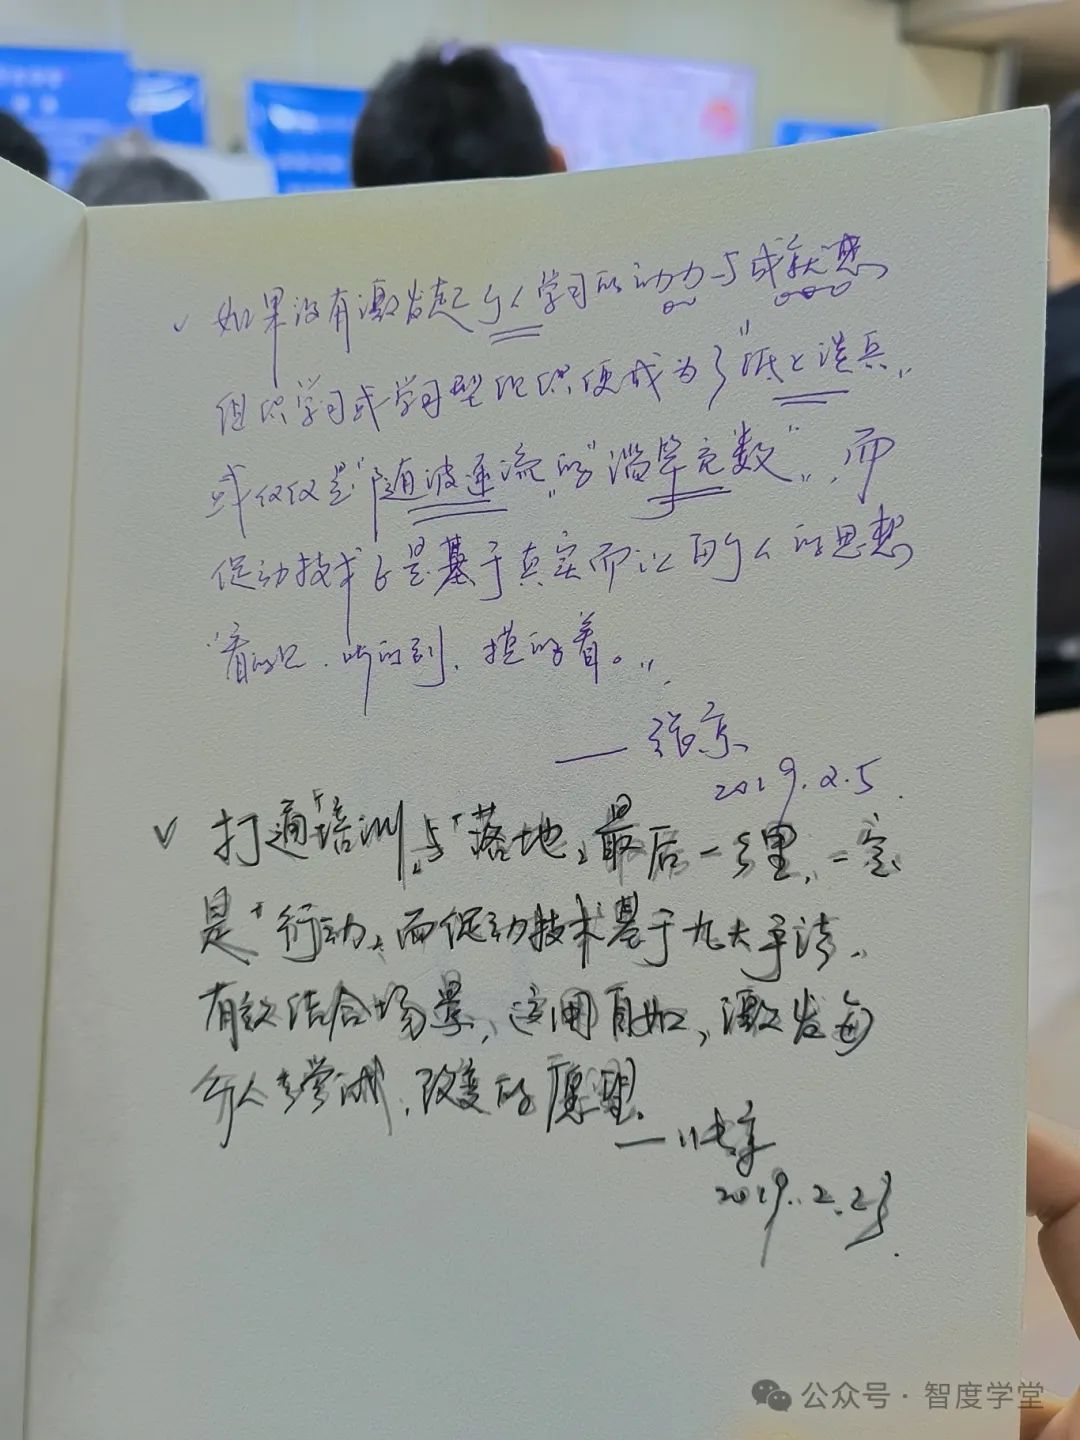 ✓ 如果没有激发起个人学习的动力与成就感,
组织学习或学习型组织便成为了“纸上谈兵”,
或仅仅是“随波逐流”的“滥竽充数”,而
促动技术正是基于真实而让每个人的思想
“看得见.听得到.摸得着。”
—— 张京
2019.2.5.
✓ 打通“培训”与“落地”最后一公里,一定
是“行动”,而促动技术基于九大手法,
有效结合场景,运用自如,激发每
个人去尝试,改变的愿望。
—— 张京
2019.2.25.
公众号 · 智度学堂